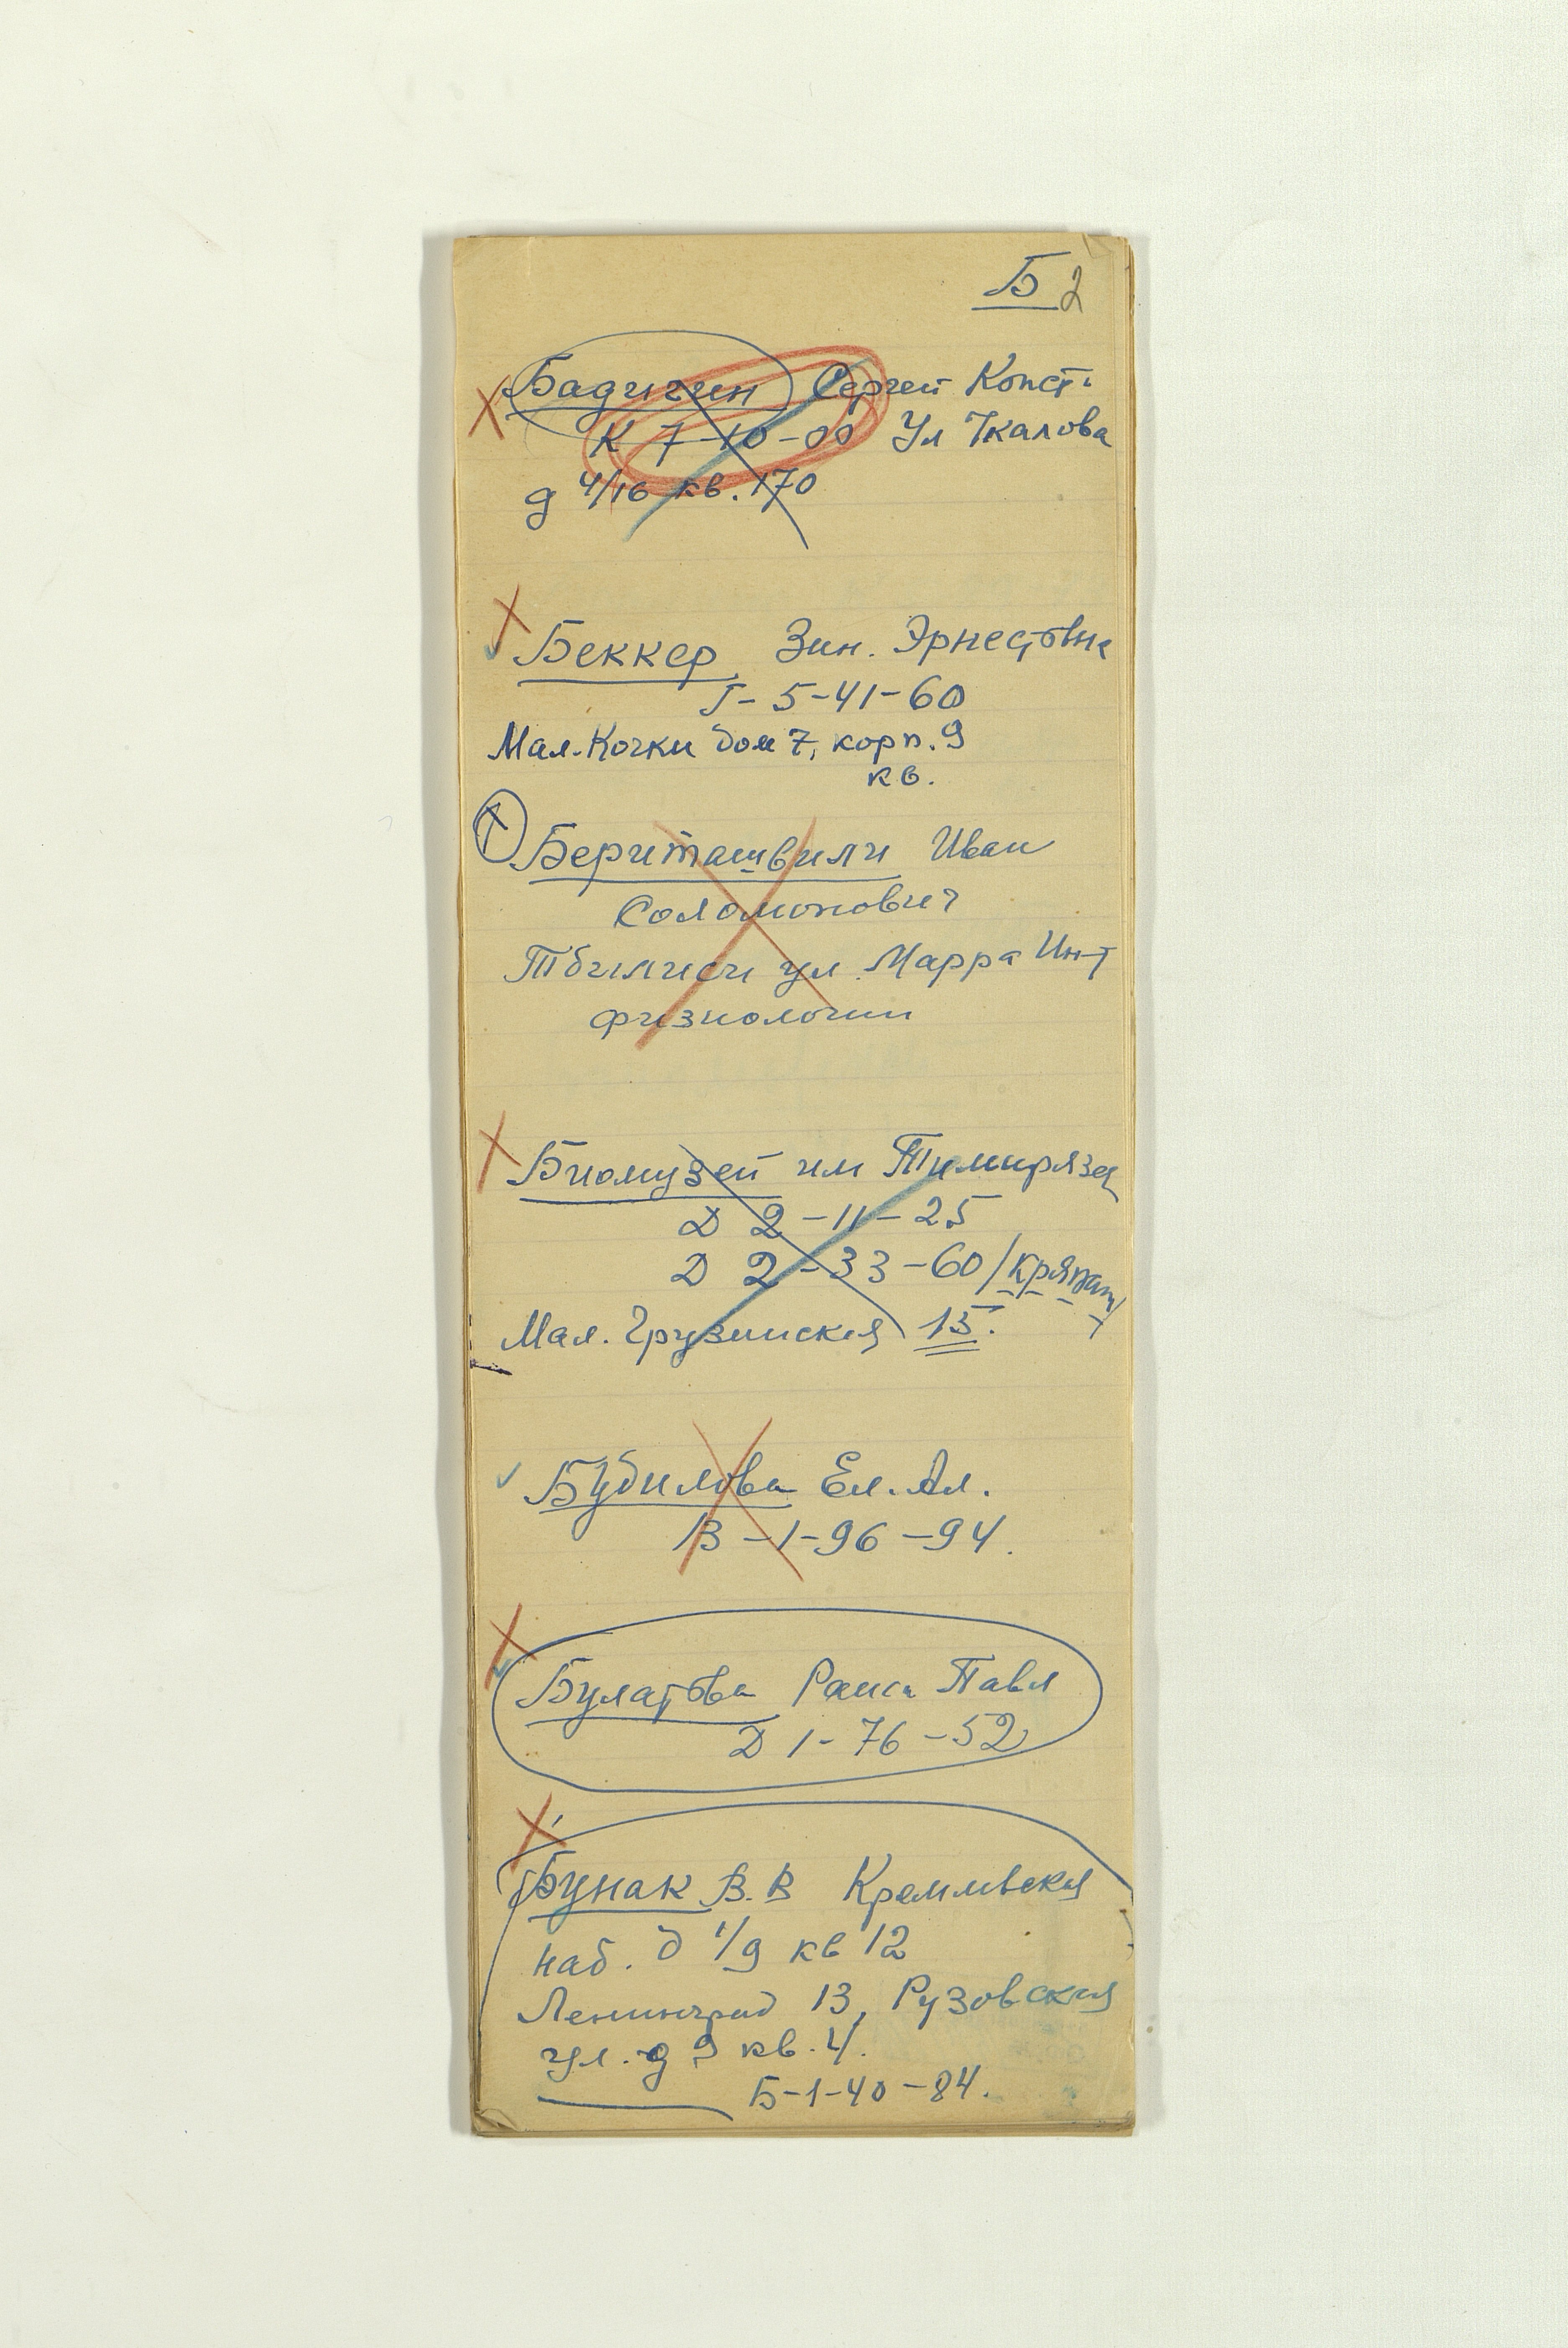 Б 2
Бадигин Сергей Конст.
К 7-10-00 Ул Чкалова
д 4/16 кв. 170
Беккер Зин. Эрнестовна
Г-5-41-60
Мал. Кочки дом 7, корп. 9
кв.
Бериташвили Иван
Соломонович
Тбилиси ул. Марра Ин-т
физиологии
Биомузей им Тимирязева
Д 2-11-25
Д 2-33-60/
Мал. Грузинская 15.
Будилова Ел. Ал.
В-1-96-94.
Булатова Раиса Павл
Д 1-76-52
Бунак В.В Кремлевская
наб. д 1/9 кв 12
Ленинград 13, Рузовская
ул. д 9 кв. 4.
Б-1-40-84.